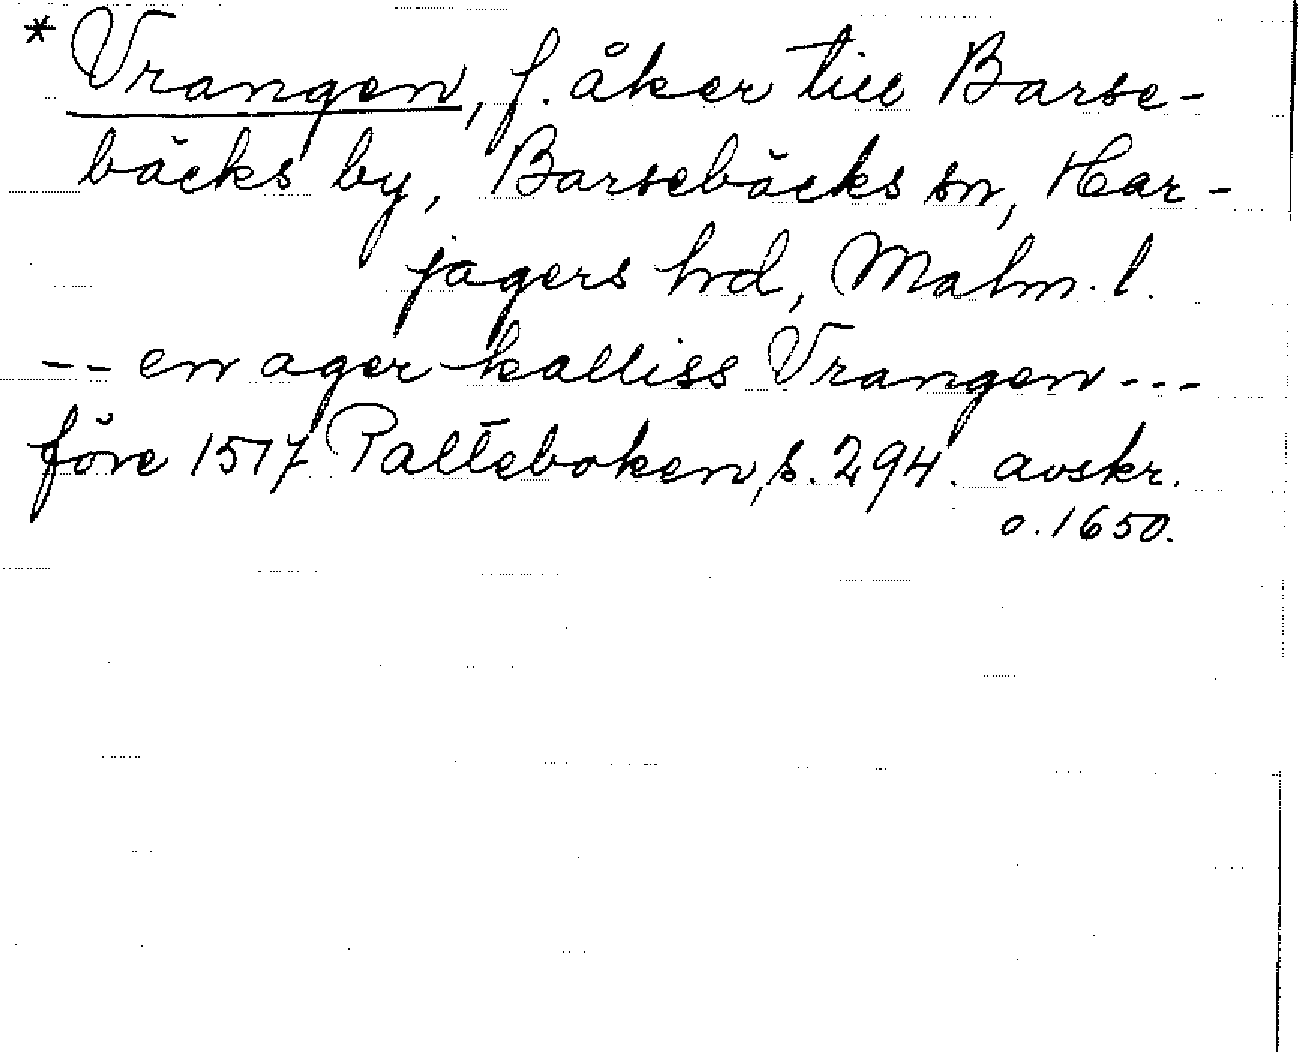 * Vrangen, f. åker till Barse-
bäcks by, Barsebäcks sn, Har-
jagers hd, Malm. l.
-- en ager kalliss Vrangen ---
före 1517 Palteboken, s. 294. avskr.
o. 1650.